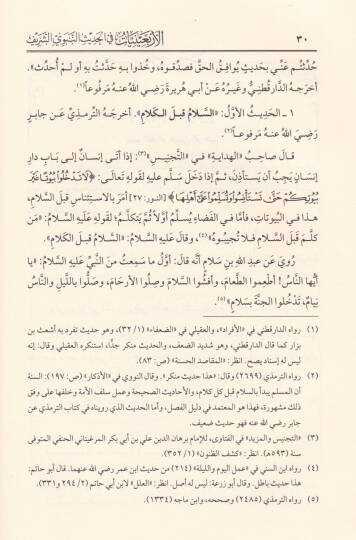 ٣٠ الأربعينيات في الحديث النبوي الشريف
حُدِّثتُم عَنِّي بحَديثٍ يُوافِقُ الحقَّ فصدِّقوهُ، وخُذوا بهِ حدَّثتُ بهِ أو لمْ أُحدِّث».
أخرجَهُ الدَّارقُطنيُّ وغيرُهُ عنْ أبي هُريرةَ رَضِيَ اللهُ عنهُ مَرفُوعاً(١).
١ ـ الحَدِيثُ الأوَّلُ: «السَّلامُ قَبلَ الكَلَامِ». أخرجَهُ التِّرمذيُّ عَن جابرٍ
رَضِيَ اللهُ عنهُ مَرفُوعاً(٢).
قالَ صاحِبُ «الهِدايةِ» في «التَّجنِيسِ»(٣): إذا أتَى إنسانٌ إلى بَابِ دارِ
إنسَانٍ يَجِبُ أن يَستأذِنَ، ثمَّ إذا دَخَلَ سلَّمَ عليهِ لقَولِهِ تَعالَى: ﴿لَا تَدْخُلُوا بُيُوتًا غَيْرَ
بُيُوتِكُمْ حَتَّى تَسْتَأْنِسُوا وَتُسَلِّمُوا عَلَى أَهْلِهَا﴾ [النور: ٢٧] أمَرَ بالاستِئناسِ قَبلَ السَّلامِ،
هَذا في البُيوتاتِ، فأمَّا في الفَضَاءِ يُسلِّمُ أوَّلاً ثُمَّ يَتكلَّمُ؛ لقَولِهِ عليهِ السَّلامُ: «مَن
كَلَّمَ قَبلَ السَّلامِ فلا تُجِيبُوهُ»(٤)، وقالَ عَليهِ السَّلامُ: «السَّلامُ قَبلَ الكَلامِ».
رُوِيَ عن عَبدِ اللهِ بنِ سَلامٍ أنَّه قالَ: أوَّلُ ما سَمِعتُ مِنَ النَّبيِّ عَليهِ السَّلامُ: «يا
أيُّها النَّاسُ! أطعِمُوا الطَّعامَ، وأفشُوا السَّلامَ وصِلُوا الأرحَامَ، وصَلُّوا باللَّيلِ والنَّاسُ
نِيَامٌ، تَدخُلوا الجنَّةَ بسَلامٍ»(٥).
(١) رواه الدارقطني في «الأفراد»، والعقيلي في «الضعفاء» (١/ ٣٢)، وهو حديث تفرد به أشعث بن
بزار كما قال الدارقطني، وهو شديد الضعف، والحديث منكر جدًّا، استنكره العقيلي وقال: إنه
ليس له إسناد يصح. انظر: «المقاصد الحسنة» (ص: ٨٣).
(٢) رواه الترمذي (٢٦٩٩) وقال: «هذا حديث منكر». وقال النووي في «الأذكار» (ص: ١٩٧): السنة
أن المسلم يبدأ بالسلام قبل كل كلام، والأحاديث الصحيحة وعمل سلف الأمة وخلفها على وفق
ذلك مشهورة، فهذا هو المعتمد في دليل الفصل، وأما الحديث الذي رويناه في كتاب الترمذي عن
جابر رضي الله عنه فهو حديث ضعيف.
(٣) «التجنيس والمزيد» في الفتاوى، للإمام برهان الدين علي بن أبي بكر المرغيناني الحنفي المتوفى
سنة (٥٩٣هـ). انظر: «كشف الظنون» (١/ ٣٥٢).
(٤) رواه ابن السني في «عمل اليوم والليلة» (٢١٤) من حديث ابن عمر رضي الله عنهما. قال أبو حاتم:
هذا حديث باطل. وقال أبو زرعة: ليس له أصل. انظر: «العلل» لابن أبي حاتم (٢/ ٢٩٤ و٣٣١).
(٥) رواه الترمذي (٢٤٨٥) وصححه، وابن ماجه (١٣٣٤).